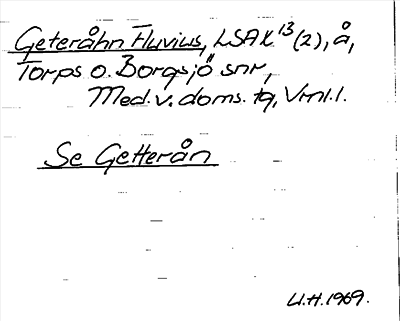 Geteråhn Fluvius, LSA K 13 (2), å,
Torps o. Borgsjö snr,
Med. v. doms. tg, Vrnl. l.
Se Getterån
U.H. 1969.